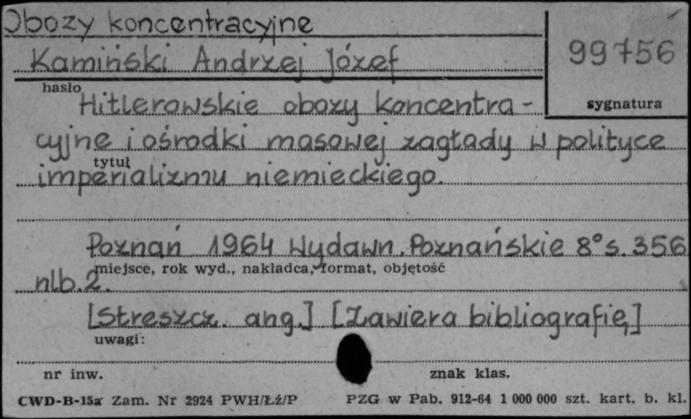 Obozy koncentracyjne
Kamiński Andrzej Józef
99756
hasło
sygnatura
Hitlerowskie obozy koncentra-
cyjne i ośrodki masowej zagłady w polityce
tytuł
imperializmu niemieckiego.
Poznań 1964 Wydawn. Poznańskie 8° s. 356
miejsce, rok wyd., nakładca, format, objętość
nlb. 2.
[Streszcz. ang.] [Zawiera bibliografię]
uwagi:
nr inw.
znak klas.
CWD-B-15a Zam. Nr 2924 PWH/Łź/P
PZG w Pab. 912-64 1 000 000 szt. kart. b. kl.